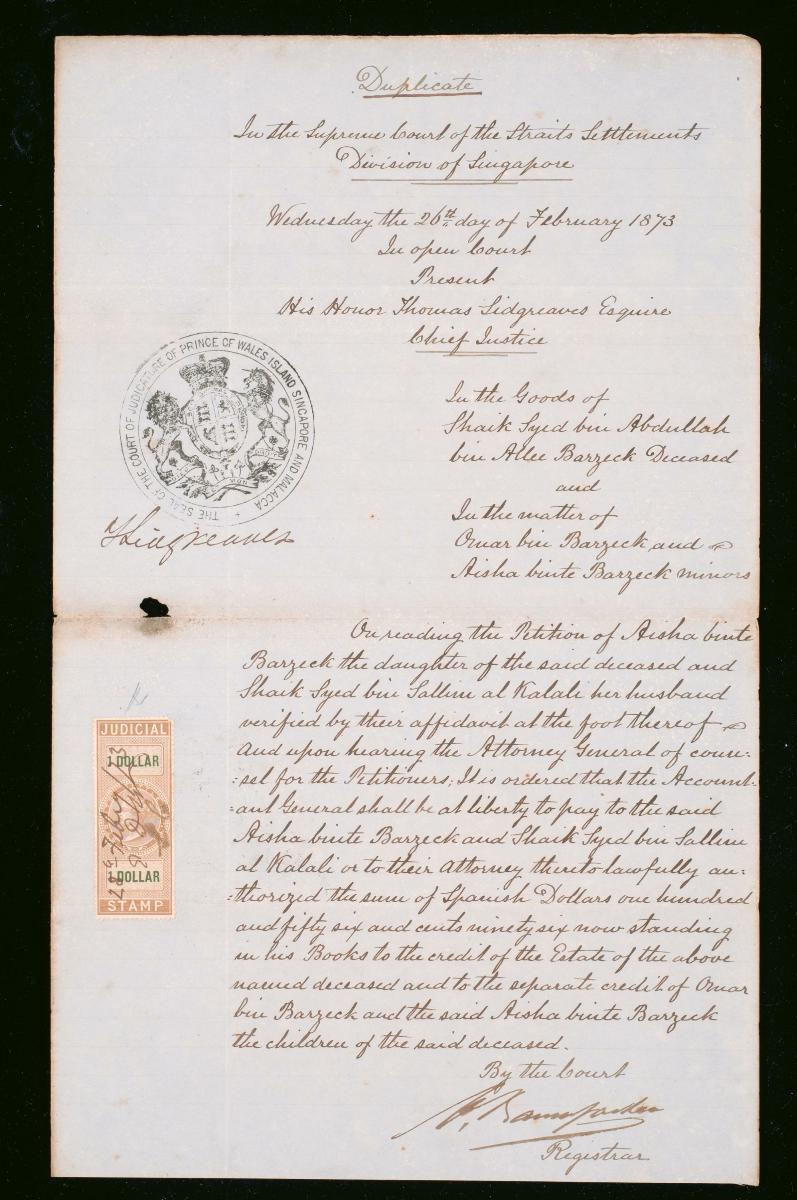 Duplicate
In the Supreme Court of the Straits Settlements
Division of Singapore
Wednesday the 26th day of February 1873
In open Court
Present
His Honor Thomas Sidgreaves Esquire
Chief Justice
THE SEAL OF THE COURT OF JUDICATURE OF PRINCE OF WALES ISLAND SINGAPORE AND MALACCA
TSidgreaves
In the Goods of
Shaik Syed bin Abdullah
bin Allee Barzeck Deceased
and
In the matter of
Omar bin Barzeck and
Aisha binte Barzeck minors
On reading the Petition of Aisha binte
Barzeck the daughter of the said deceased and
Shaik Syed bin Sallim al Kalali her husband
verified by their affidavit at the foot thereof
And upon hearing the Attorney General of coun-
-sel for the Petitioners; It is ordered that the Account-
-ant General shall be at liberty to pay to the said
Aisha binte Barzeck and Shaik Syed bin Sallim
al Kalali or to their Attorney thereto lawfully au-
-thorized the sum of Spanish Dollars one hundred
and fifty six and cents ninety six now standing
in his Books to the credit of the Estate of the above
named deceased and to the separate credit of Omar
bin Barzeck and the said Aisha binte Barzeck
the children of the said deceased.
By the Court
Registrar
JUDICIAL
1 DOLLAR
1 DOLLAR
STAMP